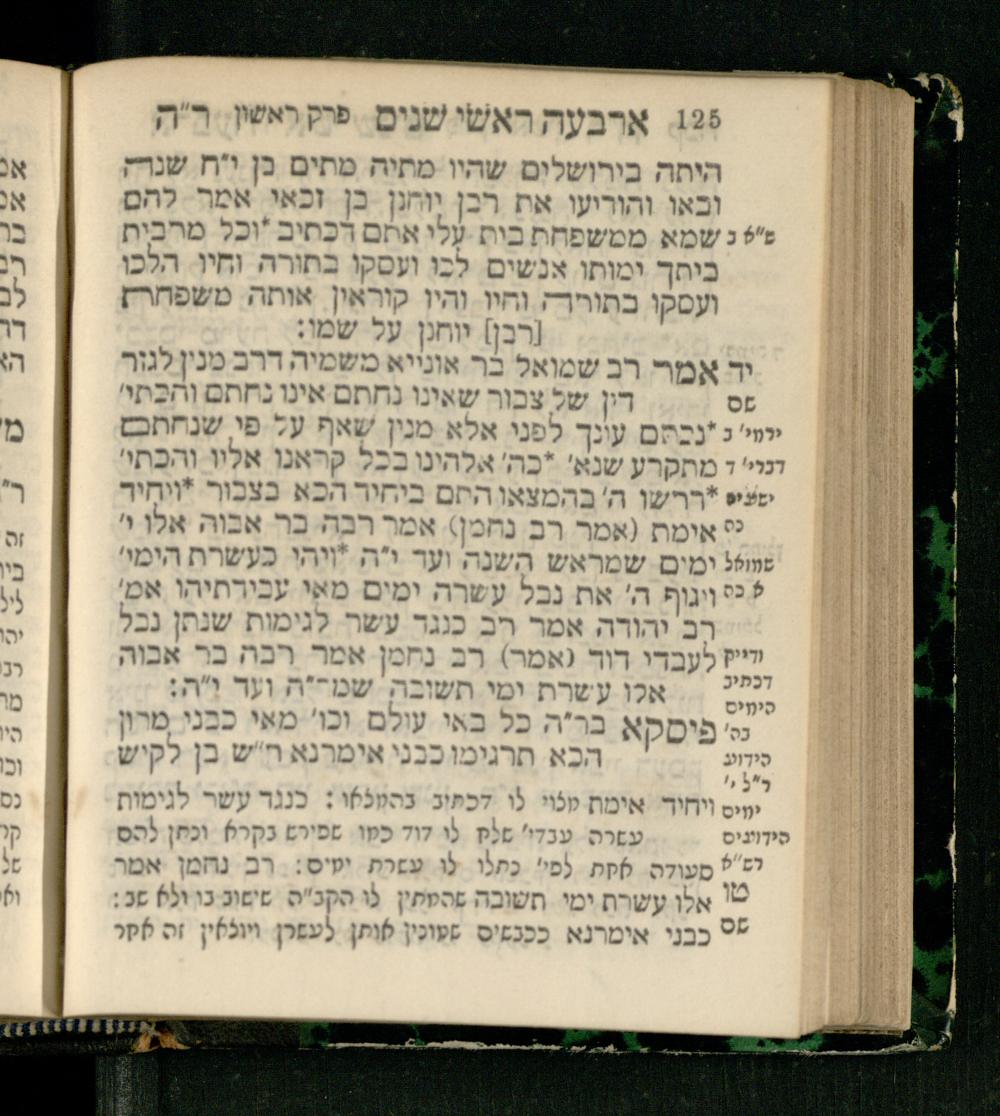 125 ארבעה ראשי שנים פרק ראשון ר״ה
היתה בירושלים שהיו מתיה מתים בן י״ח שנה
ובאו והודיעו את רבן יוחנן בן זכאי אמר להם
ש״א ב שמא ממשפחת בית עלי אתם דכתיב *וכל מרבית
ביתך ימותו אנשים לכו ועסקו בתורה וחיו הלכו
ועסקו בתורה וחיו והיו קוראין אותה משפחת
[רבן] יוחנן על שמו:
יד אמר רב שמואל בר אונייא משמיה דרב מנין לגזר
שם דין של צבור שאינו נחתם אינו נחתם והכתי׳
ירמי׳ ב *נכתם עונך לפני אלא מנין שאף על פי שנחתם
דברי׳ ד מתקרע שנא׳ *כה׳ אלהינו בכל קראנו אליו והכתי׳
ישעיה *דרשו ה׳ בהמצאו התם ביחיד הכא בצבור *ויחיד
אימת (אמר רב נחמן) אמר רבה בר אבוה אלו י׳
שמואל ימים שמראש השנה ועד י״ה *ויהי כעשרת הימי׳
א כה ויגוף ה׳ את נבל עשרה ימים מאי עבידתיהו אמ׳
רב יהודה אמר רב כנגד עשר לגימות שנתן נבל
ודייק לעבדי דוד (אמר) רב נחמן אמר רבה בר אבוה
דכתיב אלו עשרת ימי תשובה שמר״ה ועד י״ה:
הימים
בה׳ פיסקא בר״ה כל באי עולם וכו׳ מאי כבני מרון
הידוע הכא תרגימו כבני אימרנא ר״ש בן לקיש
ר״ל י׳
ימים ויחיד אימת מצוי לו דכתיב בהמצאו: כנגד עשר לגימות
הידועים עשרה עבדי׳ שלח לו דוד כמו שפירש בקרא ונתן להם
רש״א סעודה אחת לפי׳ נתלו לו עשרת ימים: רב נחמן אמר
טו אלו עשרת ימי תשובה שהמתין לו הקב״ה שישוב בו ולא שב:
שם כבני אימרנא ככבשים שמונין אותן לעשרן ויוצאין זה אחר